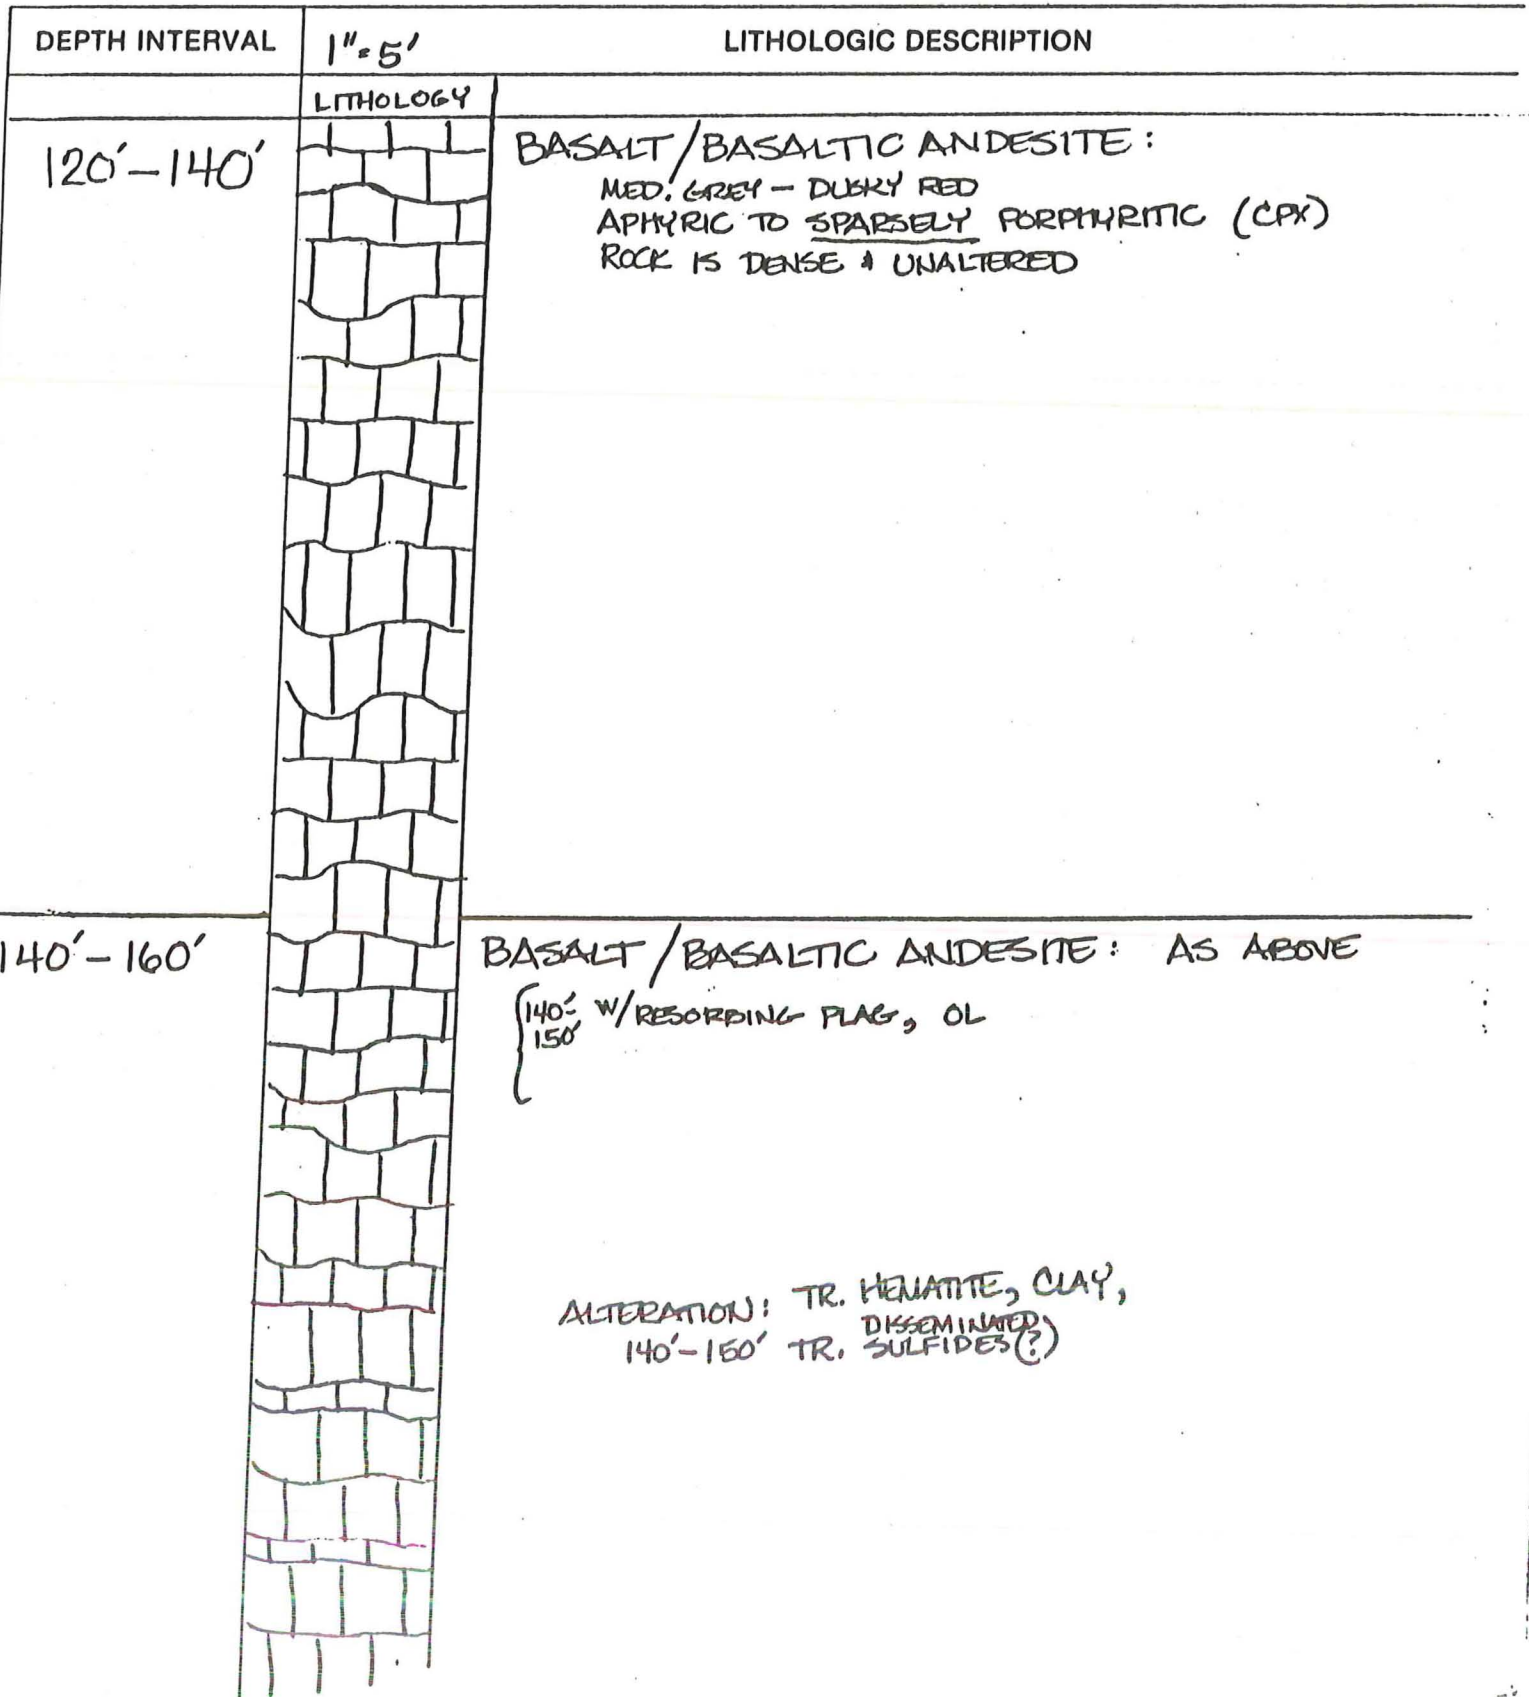 DEPTH INTERVAL 1"=5' LITHOLOGIC DESCRIPTION
LITHOLOGY
120'-140' BASALT/BASALTIC ANDESITE:
MED. GREY - DUSKY RED
APHYRIC TO SPARSELY PORPHYRITIC (CPX)
ROCK IS DENSE & UNALTERED
140'-160' BASALT/BASALTIC ANDESITE: AS ABOVE
140'- W/RESORBING PLAG, OL
150'
ALTERATION: TR. HEMATITE, CLAY,
DISSEMINATED
140'-150' TR. SULFIDES(?)